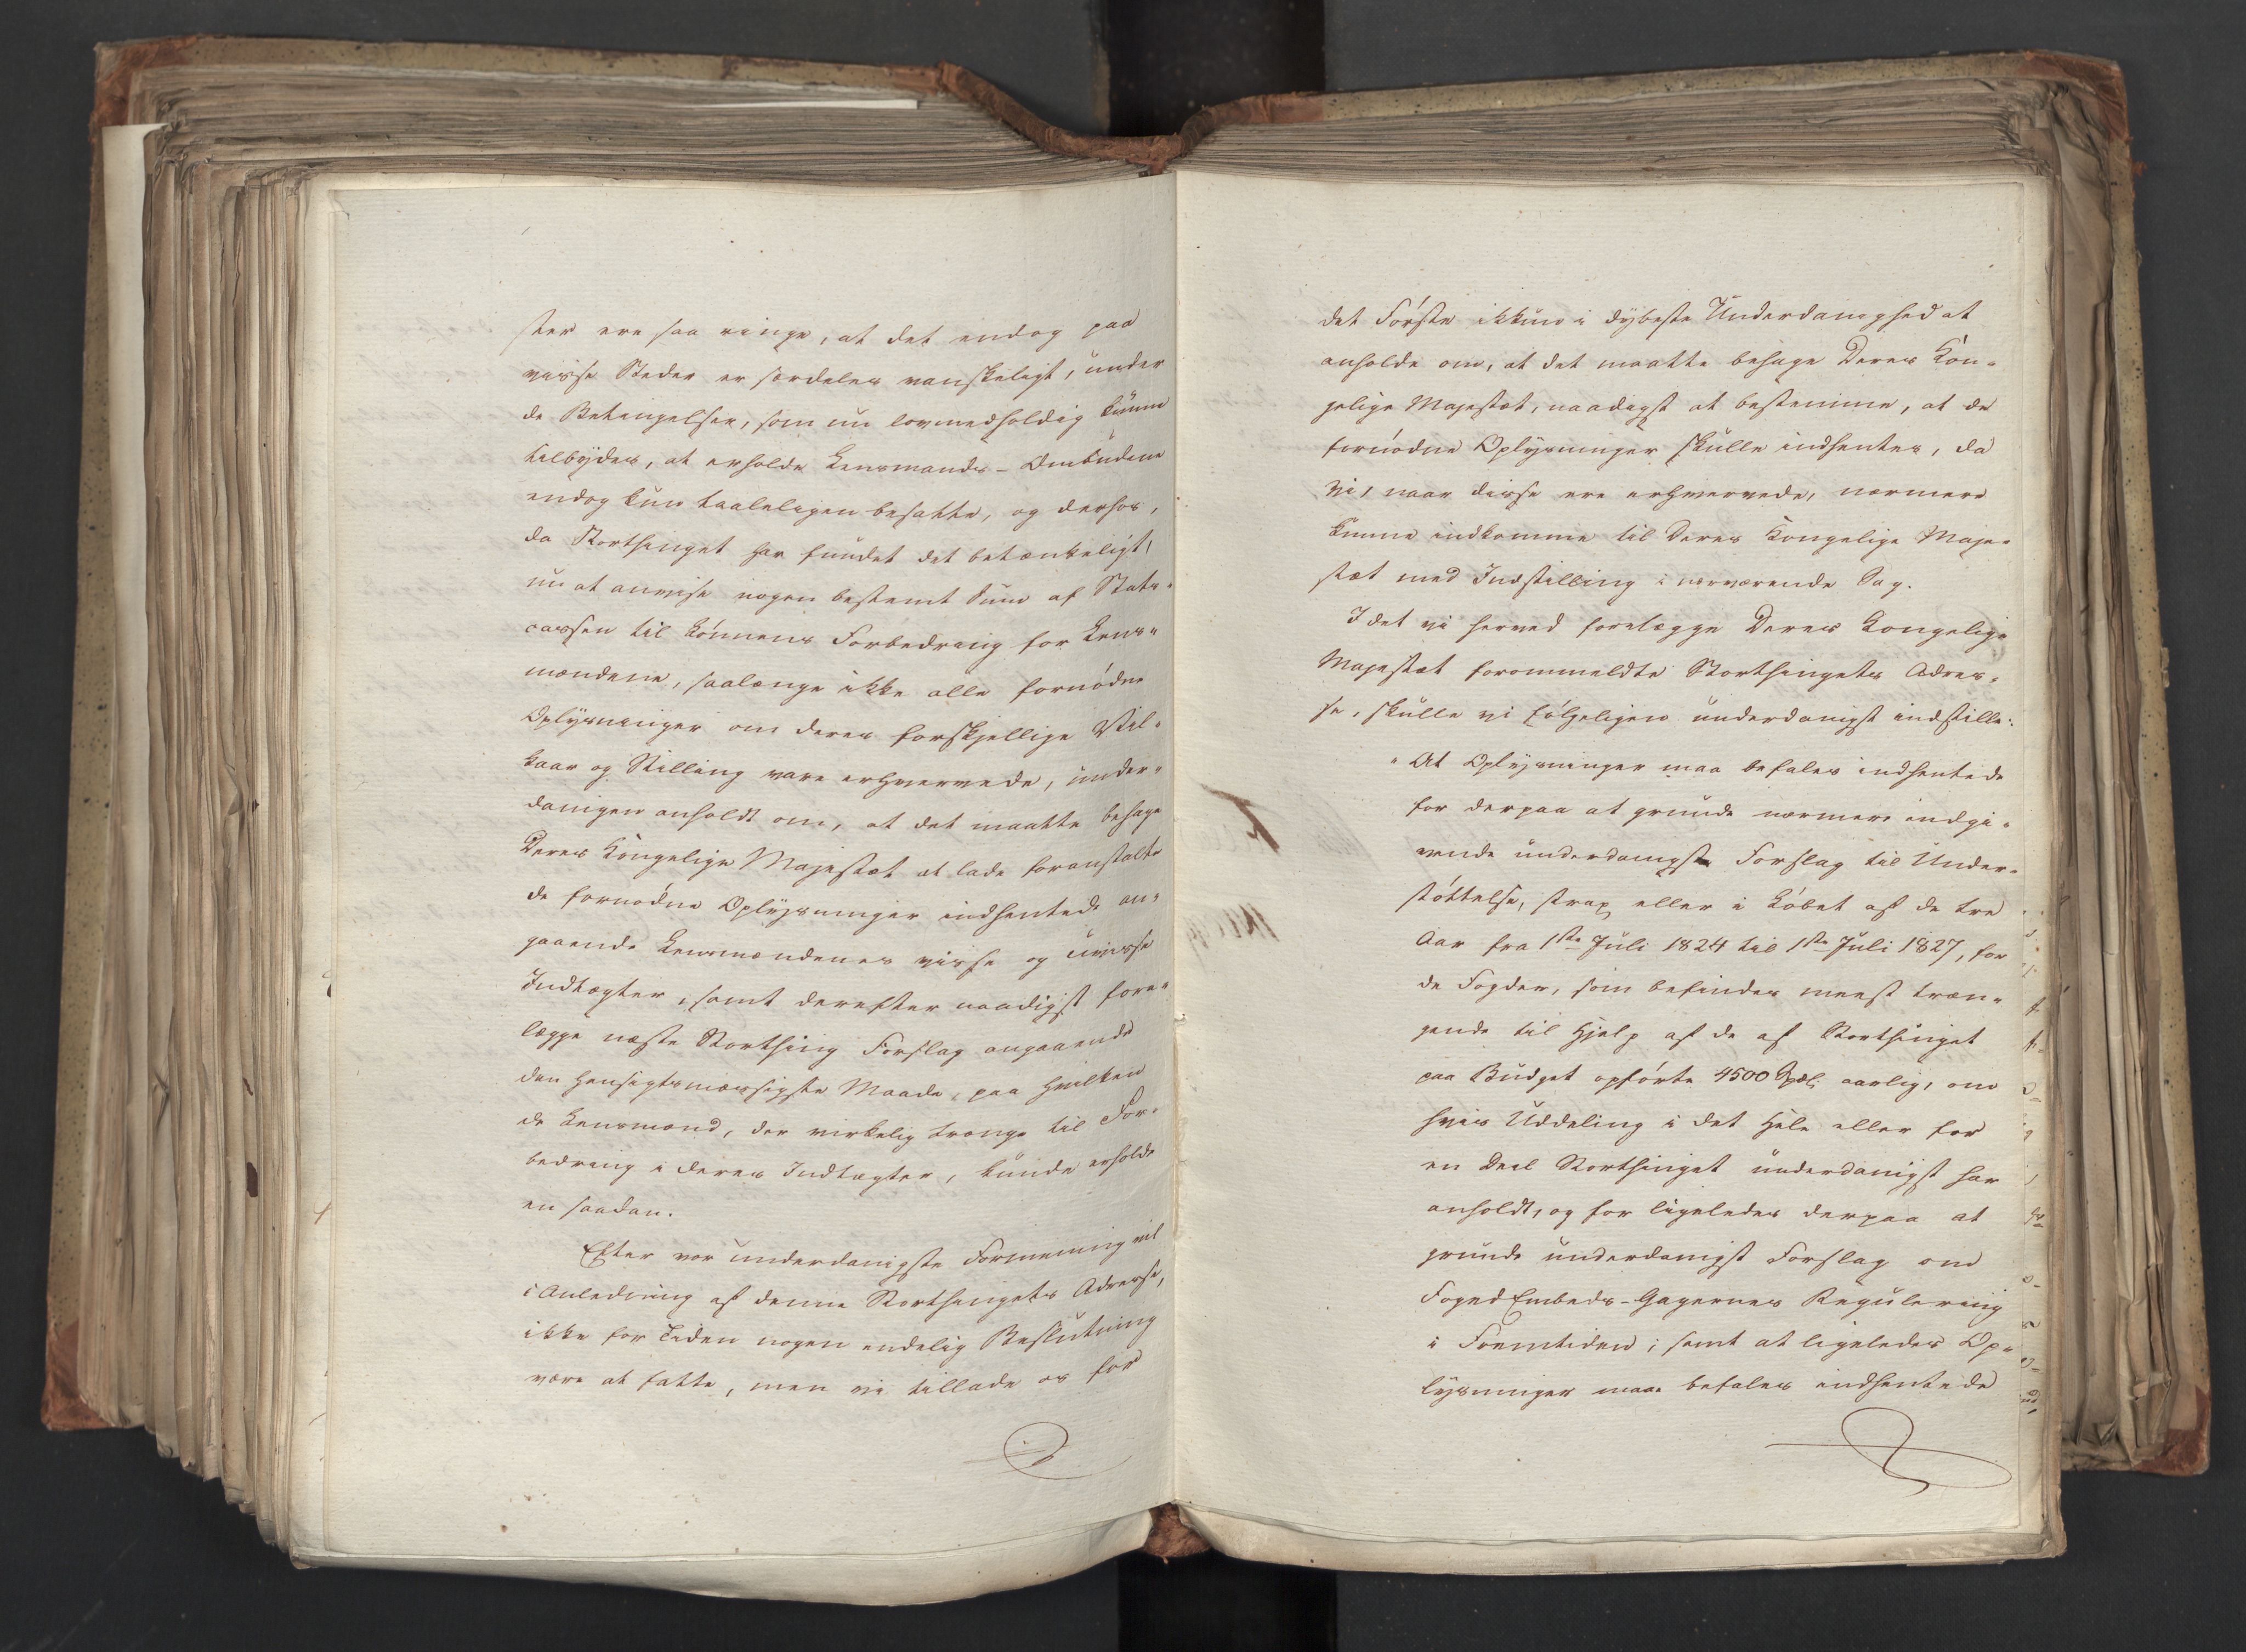 ster ere saa ringe, at det endog paa
visse Steder er særdeles vanskeligt, under
de Betingelser, som nu lovmedholdig kunne
tilbydes, at erholde Lensmands-Ombudene
endog kun taaleligen besatte, og derhos,
da Storthinget har fundet det betænkeligt,
nu at anvise nogen bestemt Sum af Stats-
cassen til Lønnens Forbedring for Lens-
mændene, saalænge ikke alle fornødne
Oplysninger om deres forskjellige Vil-
kaar og Stilling vare erhvervede, under-
danigen anholdt om, at det maatte behage
Deres Kongelige Majestæt at lade foranstalte
de fornødne Oplysninger indhentede an-
gaaende Lensmændenes visse og uvisse
Indtægter, samt derefter naadigst fore-
lægge næste Storthing Forslag angaaende
den hensigtsmæssigste Maade, paa hvilken
de Lensmænd, der virkelig trænge til For-
bedring i deres Indtægter, kunde erholde
en saadan.
Efter vor underdanigste Formening vil
i Anledning af denne Storthingets Adresse,
ikke for Tiden nogen endelig Beslutning
være at fatte, men vi tillade os for
det Første ikkun i dybeste Underdanighed at
anholde om, at det maatte behage Deres Kon-
gelige Majestæt, naadigst at bestemme, at de
fornødne Oplysninger skulle indhentes, da
vi, naar disse ere erhvervede, nærmere
kunne indkomme til Deres Kongelige Maje-
stæt med Indstilling i nærværende Sag.
Idet vi herved forelægge Deres Kongelige
Majestæt forommeldte Storthingets Adres-
se, skulle vi følgeligen underdanigst indstille:
"At Oplysninger maa befales indhentede
for derpaa at grunde nærmere indgi-
vende underdanigste Forslag til Under-
støttelse, strax eller i Løbet af de tre
Aar fra 1ste Juli 1824 til 1ste Juli 1827, for
de Fogder, som befindes meest træn-
gende til Hjelp af de af Storthinget
paa Budget opførte 4500 Spdl. aarlig, om
hvis Uddeling i det Hele eller for
en Deel Storthinget underdanigst har
anholdt, og for ligeledes derpaa at
grunde underdanigst Forslag om
Foged Embeds-Gagernes Regulering
i Fremtiden; samt at ligeledes Op-
lysninger maa befales indhentede